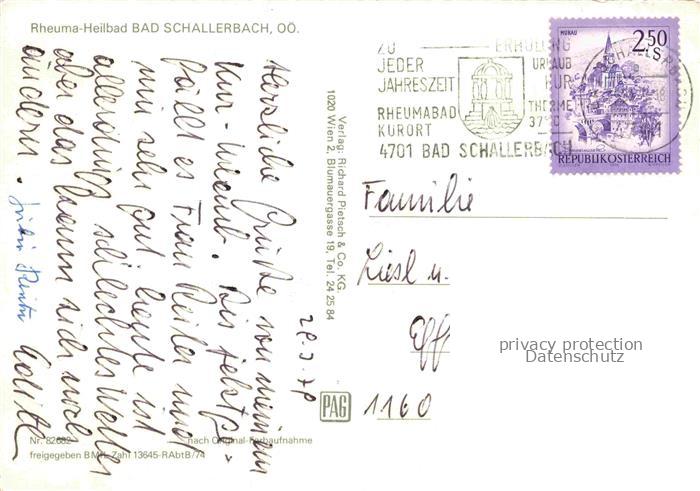 Rheuma-Heilbad BAD SCHALLERBACH, OÖ.
ZU
JEDER
JAHRESZEIT
RHEUMABAD
KURORT
4701 BAD SCHALLERBACH
ERHOLUNG
URLAUB
KUR
THERME
37°C
MURAU
2.50
S
REPUBLIK ÖSTERREICH
Herzliche Grüße von meinem
Kur-Urlaub. Bis jetzt
gefällt es Frau Reiter und
mir sehr gut heute ist
allerdings schlechtes Wetter
aber das kann sich noch
ändern.
28.3.78
Verlag: Richard Pietsch & Co. KG.
1020 Wien 2, Blumauergasse 19, Tel. 24 25 84
PAG
Familie
Liesl u.
1160
privacy protection
Datenschutz
Nr. 82682 nach Original-Farbaufnahme
freigegeben BMfL Zahl 13645-RAbtB/74